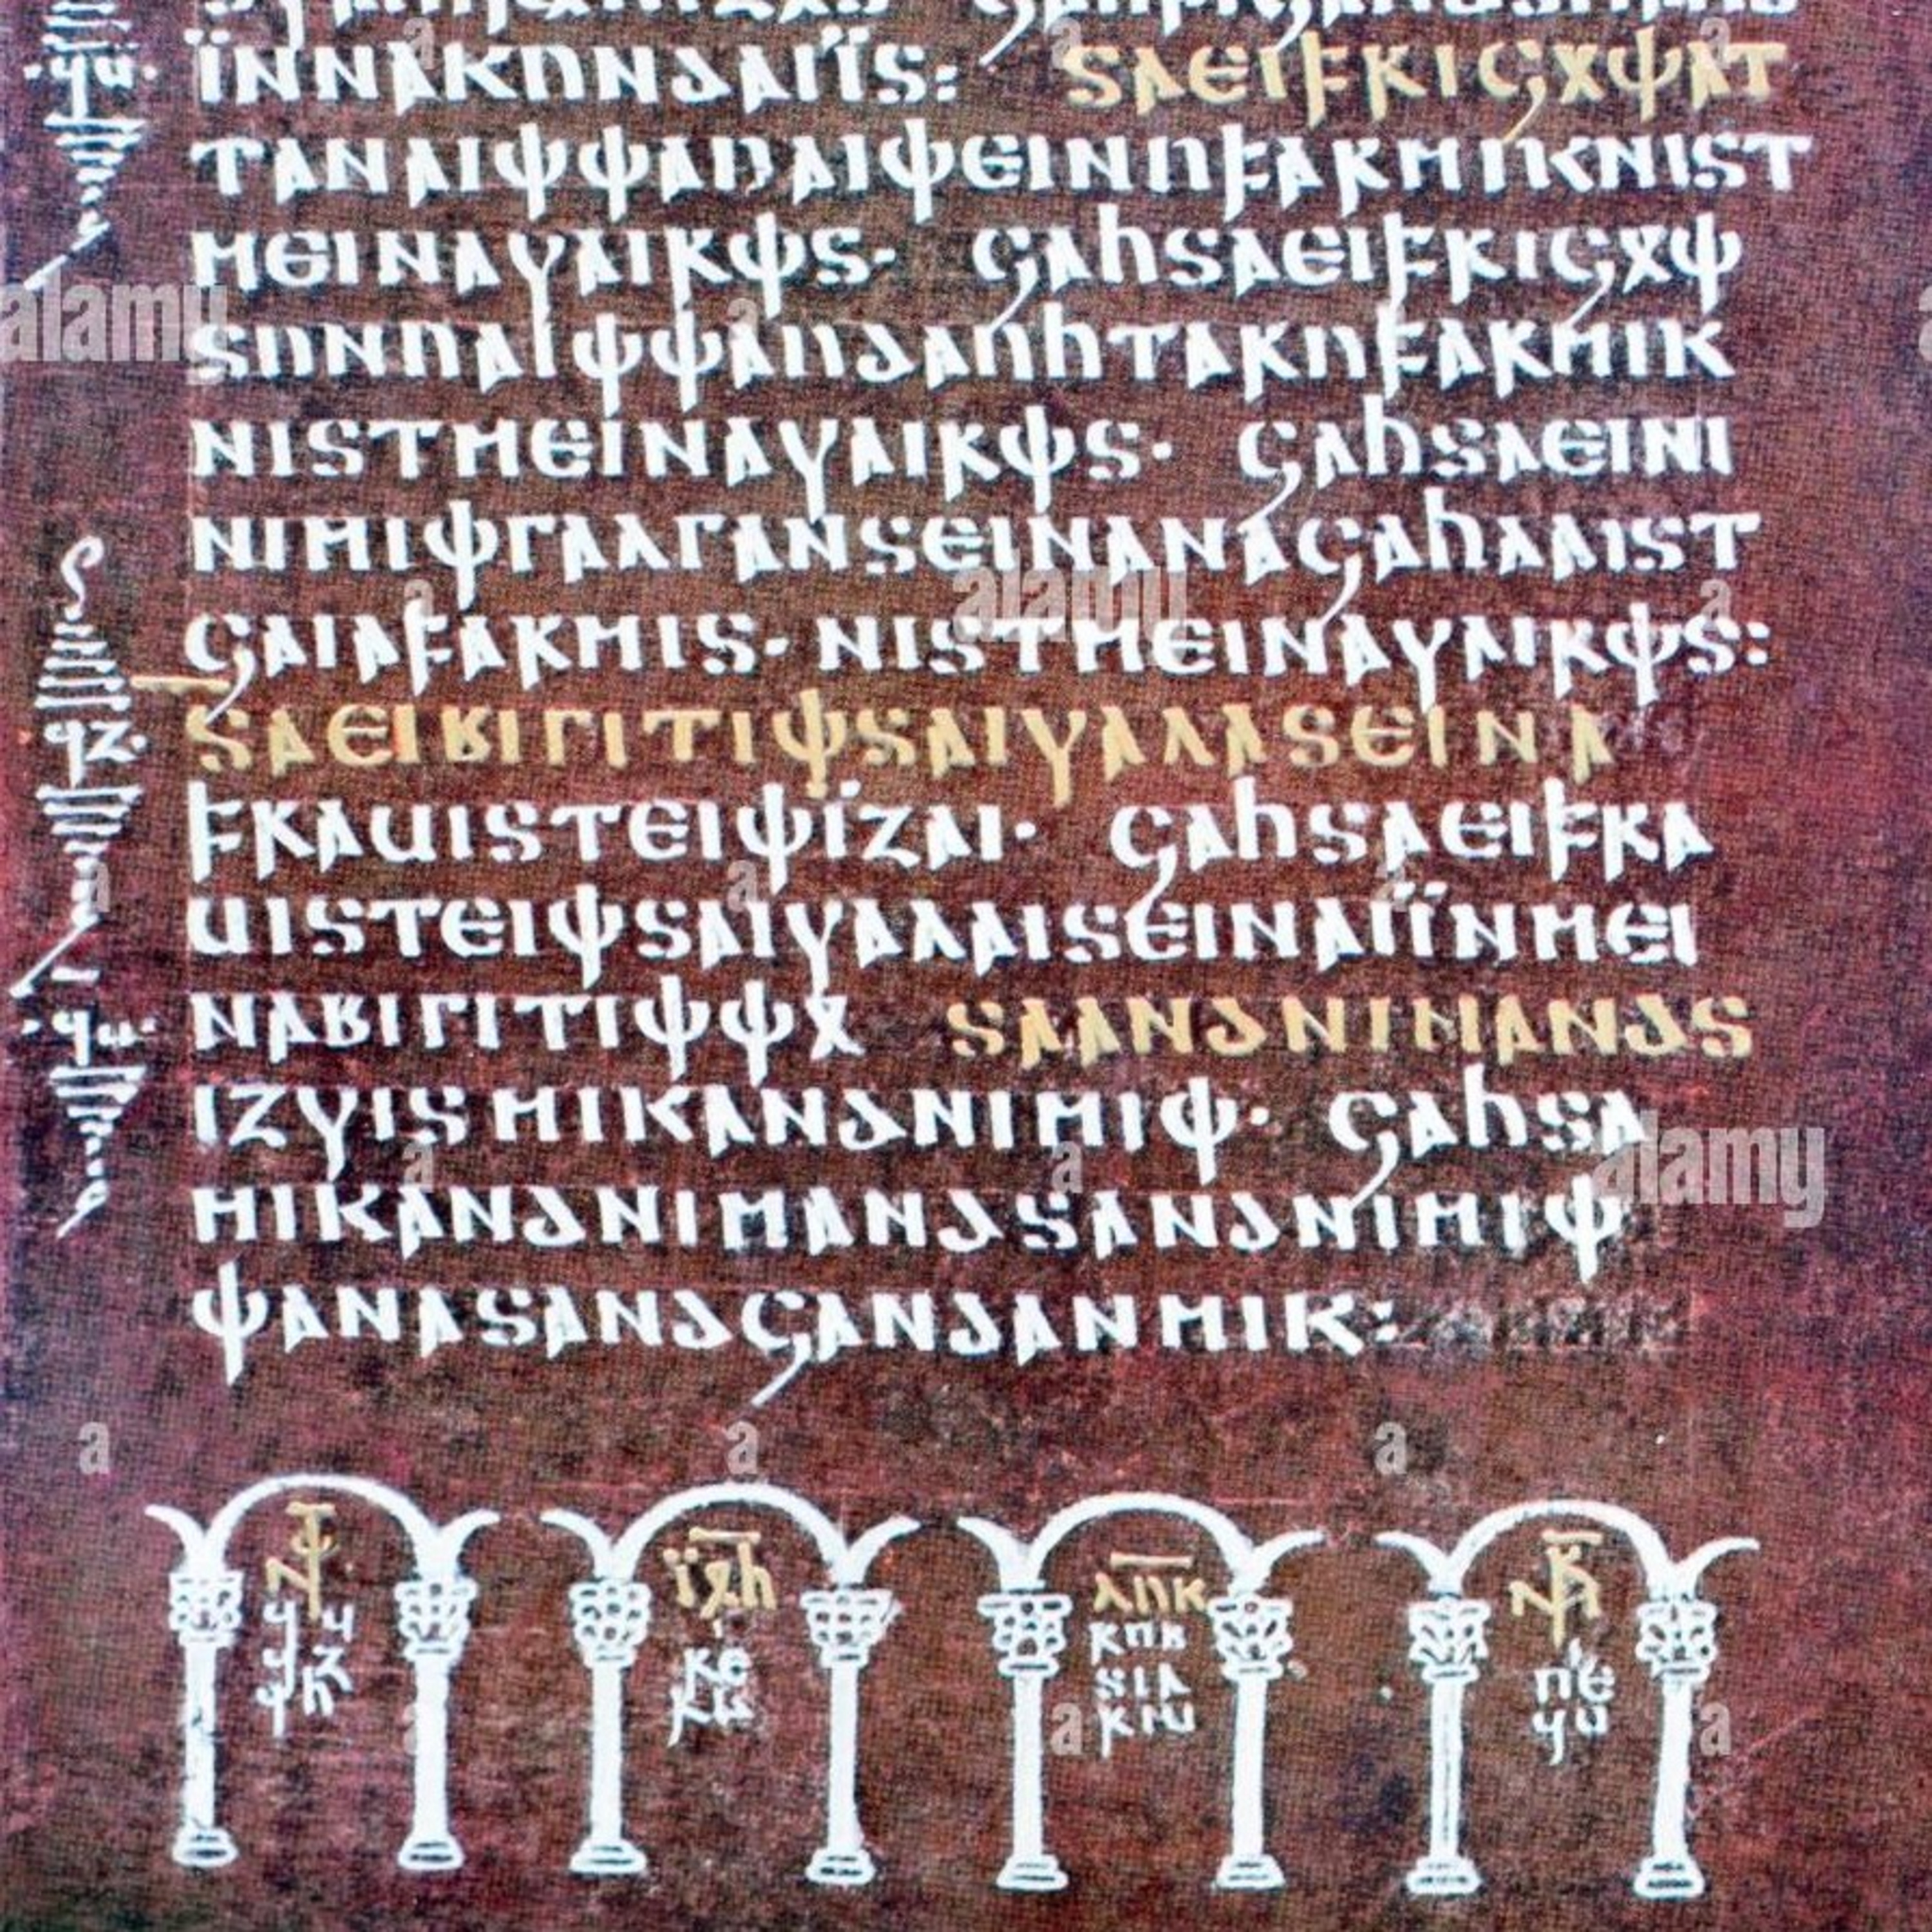 𐌹̈𐌽𐌽𐌰𐌺𐌿𐌽𐌳𐌰𐌹𐌹̈𐍃: 𐍃𐌰𐌴𐌹𐍆𐍂𐌹𐌾𐍉𐌸𐌰𐍄
𐍄𐌰𐌽𐌰𐌹𐌸𐌸𐌰𐌿𐌰𐌹𐌸𐌴𐌹𐌽𐌿𐍆𐌰𐍂𐌼𐌹𐌺𐌽𐌹𐍃𐍄
𐌼𐌴𐌹𐌽𐌰𐍅𐌰𐌹𐍂𐌸𐍃· 𐌾𐌰𐌷𐍃𐌰𐌴𐌹𐍆𐍂𐌹𐌾𐍉𐌸
𐍃𐌿𐌽𐌿𐌰𐌹𐌸𐌸𐌰𐌿𐌳𐌰𐌿𐌷𐍄𐌰𐍂𐌿𐍆𐌰𐍂𐌼𐌹𐌺
𐌽𐌹𐍃𐍄𐌼𐌴𐌹𐌽𐌰𐍅𐌰𐌹𐍂𐌸𐍃· 𐌾𐌰𐌷𐍃𐌰𐌴𐌹𐌽𐌹
𐌽𐌹𐌼𐌹𐌸𐌲𐌰𐌻𐌲𐌰𐌽𐍃𐌴𐌹𐌽𐌰𐌽𐌰𐌾𐌰𐌷𐌻𐌰𐌹𐍃𐍄
𐌾𐌰𐌹𐌰𐍆𐌰𐍂𐌼𐌹𐍃· 𐌽𐌹𐍃𐍄𐌼𐌴𐌹𐌽𐌰𐍅𐌰𐌹𐍂𐌸𐍃:
𐍃𐌰𐌴𐌹𐌱𐌹𐌲𐌹𐍄𐌹𐌸𐍃𐌰𐌹𐍅𐌰𐌻𐌰𐍃𐌴𐌹𐌽𐌰
𐍆𐍂𐌰𐌵𐌹𐍃𐍄𐌴𐌹𐌸𐌹̈𐌶𐌰𐌹· 𐌾𐌰𐌷𐍃𐌰𐌴𐌹𐍆𐍂𐌰
𐌵𐌹𐍃𐍄𐌴𐌹𐌸𐍃𐌰𐌹𐍅𐌰𐌻𐌰𐌹𐍃𐌴𐌹𐌽𐌰𐌹𐌹̈𐌽𐌼𐌴𐌹
𐌽𐌰𐌱𐌹𐌲𐌹𐍄𐌹𐌸𐌸𐍉 𐍃𐌰𐌰𐌽𐌳𐌽𐌹𐌼𐌰𐌽𐌳𐍃
𐌹𐌶𐍅𐌹𐍃𐌼𐌹𐌺𐌰𐌽𐌳𐌽𐌹𐌼𐌹𐌸· 𐌾𐌰𐌷𐍃𐌰
𐌼𐌹𐌺𐌰𐌽𐌳𐌽𐌹𐌼𐌰𐌽𐌳𐍃𐌰𐌽𐌳𐌽𐌹𐌼𐌹𐌸
𐌸𐌰𐌽𐌰𐍃𐌰𐌽𐌳𐌾𐌰𐌽𐌳𐌰𐌽𐌼𐌹𐌺:
𐌹̈𐍉𐌷 𐌻𐌿𐌺